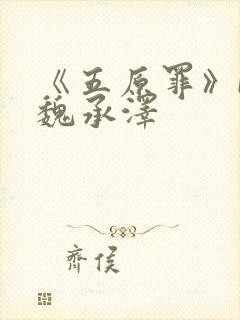 《五原罪》
魏承澤
齊侯